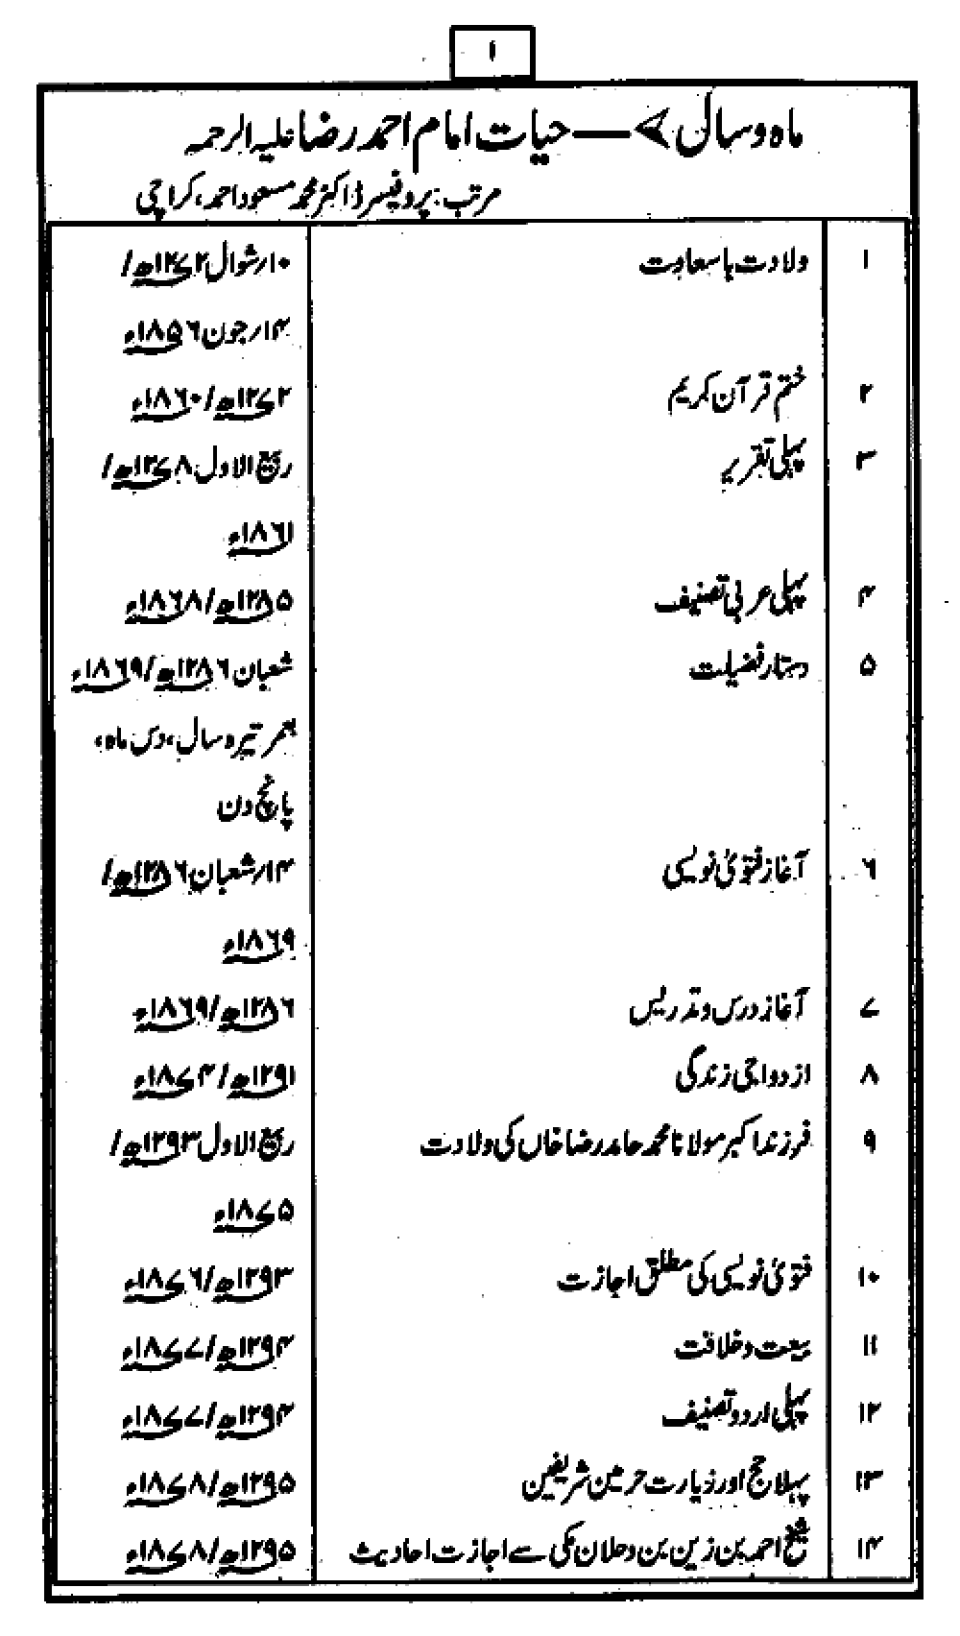 ۱
ماہ و سال ➤— حیات امام احمد رضا علیہ الرحمہ
مرتب: پروفیسر ڈاکٹر محمد مسعود احمد، کراچی
۱ ولادت باسعادت ۱۰؍شوال ۱۲۷۲ھ/
۱۴؍جون ۱۸۵۶ء
۲ ختم قرآن کریم ۱۲۷۲ھ/۱۸۶۰ء
۳ پہلی تقریر ربیع الاول ۱۲۷۸ھ/
۱۸۶۱ء
۴ پہلی عربی تصنیف ۱۲۸۵ھ/۱۸۶۸ء
۵ دستار فضیلت شعبان ۱۲۸۶ھ/۱۸۶۹ء
بعمر تیرہ سال، دس ماہ،
پانچ دن
۶ آغاز فتویٰ نویسی ۱۴؍شعبان ۱۲۸۶ھ/
۱۸۶۹ء
۷ آغاز درس و تدریس ۱۲۸۶ھ/۱۸۶۹ء
۸ ازدواجی زندگی ۱۲۹۱ھ/۱۸۷۴ء
۹ فرزند اکبر مولانا محمد حامد رضا خاں کی ولادت ربیع الاول ۱۲۹۳ھ/
۱۸۷۵ء
۱۰ فتویٰ نویسی کی مطلق اجازت ۱۲۹۳ھ/۱۸۷۶ء
۱۱ بیعت و خلافت ۱۲۹۴ھ/۱۸۷۷ء
۱۲ پہلی اردو تصنیف ۱۲۹۴ھ/۱۸۷۷ء
۱۳ پہلا حج اور زیارت حرمین شریفین ۱۲۹۵ھ/۱۸۷۸ء
۱۴ شیخ احمد بن زین بن دحلان مکی سے اجازت احادیث ۱۲۹۵ھ/۱۸۷۸ء